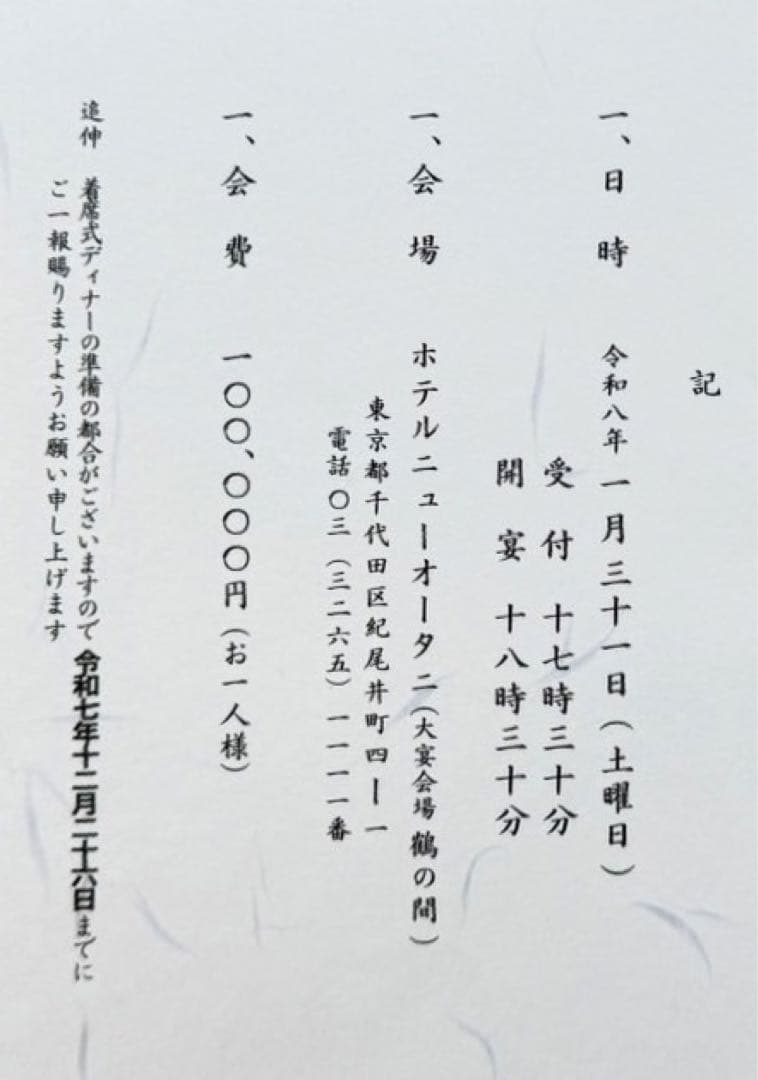 記
一、日時 令和八年一月三十一日（土曜日）
受付 十七時三十分
開宴 十八時三十分
一、会場 ホテルニューオータニ（大宴会場 鶴の間）
東京都千代田区紀尾井町四ー一
電話〇三（三二六五）一一一一番
一、会費 一〇〇、〇〇〇円（お一人様）
追伸 着席式ディナーの準備の都合がございますので令和七年十二月二十六日までに
ご一報賜りますようお願い申し上げます